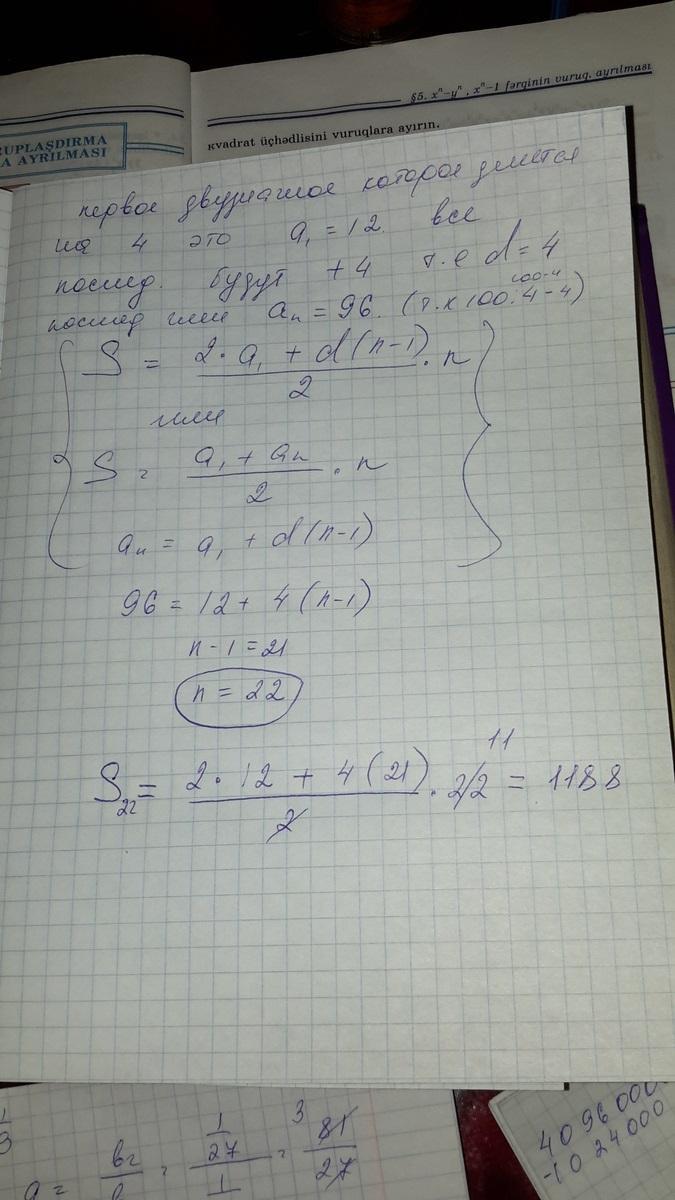 §5. xⁿ−yⁿ, xⁿ−1 fərqinin vuruq. ayrılması
RUPLAŞDIRMA
A AYRILMASI
kvadrat üçhədlisini vuruqlara ayırın.
первое двузначное которое делится
на 4 это a₁ = 12. все
послед. будут +4 т.е d = 4
послед или aₙ = 96. (т.к 100:4-4)
100-4
S = (2·a₁ + d(n-1))/2 · n
или
S = (a₁ + aₙ)/2 · n
aₙ = a₁ + d(n-1)
96 = 12 + 4(n-1)
n - 1 = 21
n = 22
11
S₂₂ = (2·12 + 4(21))/2 · 22 = 1188
1/3
1/27
3 81/27
1
4096000
-1024000